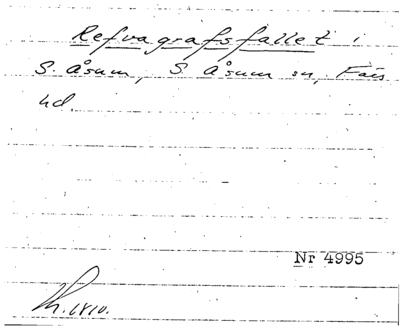 Refvagrafsfallet i
S. Åsum, S Åsum sn, Färs
hd.
Nr 4995